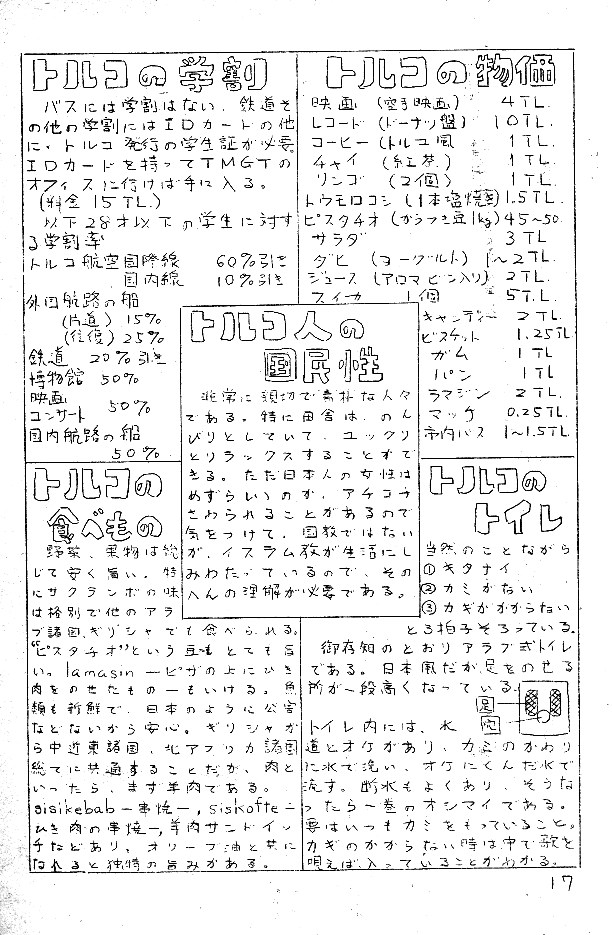 トルコの学割
バスには学割はない、鉄道そ
の他の学割にはIDカードの他
に、トルコ発行の学生証が必要。
IDカードを持ってTMGTの
オフィスに行けば手に入る。
(料金 15TL)
以下28才以下の学生に対す
る学割率
トルコ航空国際線 60%引き
国内線 10%引き
外国航路の船
(片道) 15%
(往復) 25%
鉄道 20%引き
博物館 50%
映画
コンサート 50%
国内航路の船
50%
トルコの物価
映画 (空き映画) 4TL.
レコード (ドーナツ盤) 10TL.
コーヒー (トルコ風) 1TL
チャイ (紅茶) 1TL
リンゴ (2個) 1TL
トウモロコシ (1本塩焼き) 1.5TL.
ピスタチオ (からつき豆1kg) 45~50.
サラダ 3TL
ダヒ (ヨーグルト) 1~2TL
ジュース (アロマビン入り) 2TL
スイカ 1個 5TL
キャンディー 2TL
ビスケット 1.25TL
ガム 1TL
パン 1TL
ラマジン 2TL
マッチ 0.25TL
市内バス 1~1.5TL
トルコ人の
国民性
非常に親切で素朴な人々
である。特に田舎は、のん
びりとしていて、ユックリ
とリラックスすることがで
きる。ただ日本人の女性は
めずらしいのか、アチコチ
さわられることがあるので
気をつけて。国教ではない
が、イスラム教が生活にし
みわたっているので、その
へんの理解が必要である。
トルコの
食べもの
野菜、果物は総
じて安く旨い。特
にサクランボの味
は格別で他のアラ
ブ諸国、ギリシャでも食べられる。
"ピスタチオ"という豆もとても旨
い。lamasin ーピザの上にひき
肉をのせたものーもいける。魚
類も新鮮で、日本のように公害
などないから安心。ギリシャか
ら中近東諸国、北アフリカ諸国
総てに共通することだが、肉と
いったら、まず羊肉である。
sisikebabー串焼ー, siskofteー
ひき肉の串焼ー, 羊肉サンドイッ
チなどあり、オリーブ油と共に
なれると独特の旨みがある。
トルコの
トイレ
当然のことながら
①キタナイ
②カミがない
③カギがかからない
と3拍子そろっている。
御存知のとおりアラブ式トイレ
である。日本風だが、足をのせる
所が一段高くなっている。
足
トイレ内には、水
道とオケがあり、カミのかわり
に水で洗い、オケにくんだ水で
流す。断水もよくあり、そうな
ったら一巻のオシマイである。
要はいつもカミをもっていること。
カギのかからない時は中で歌を
唄えば入っていることがわかる。
17